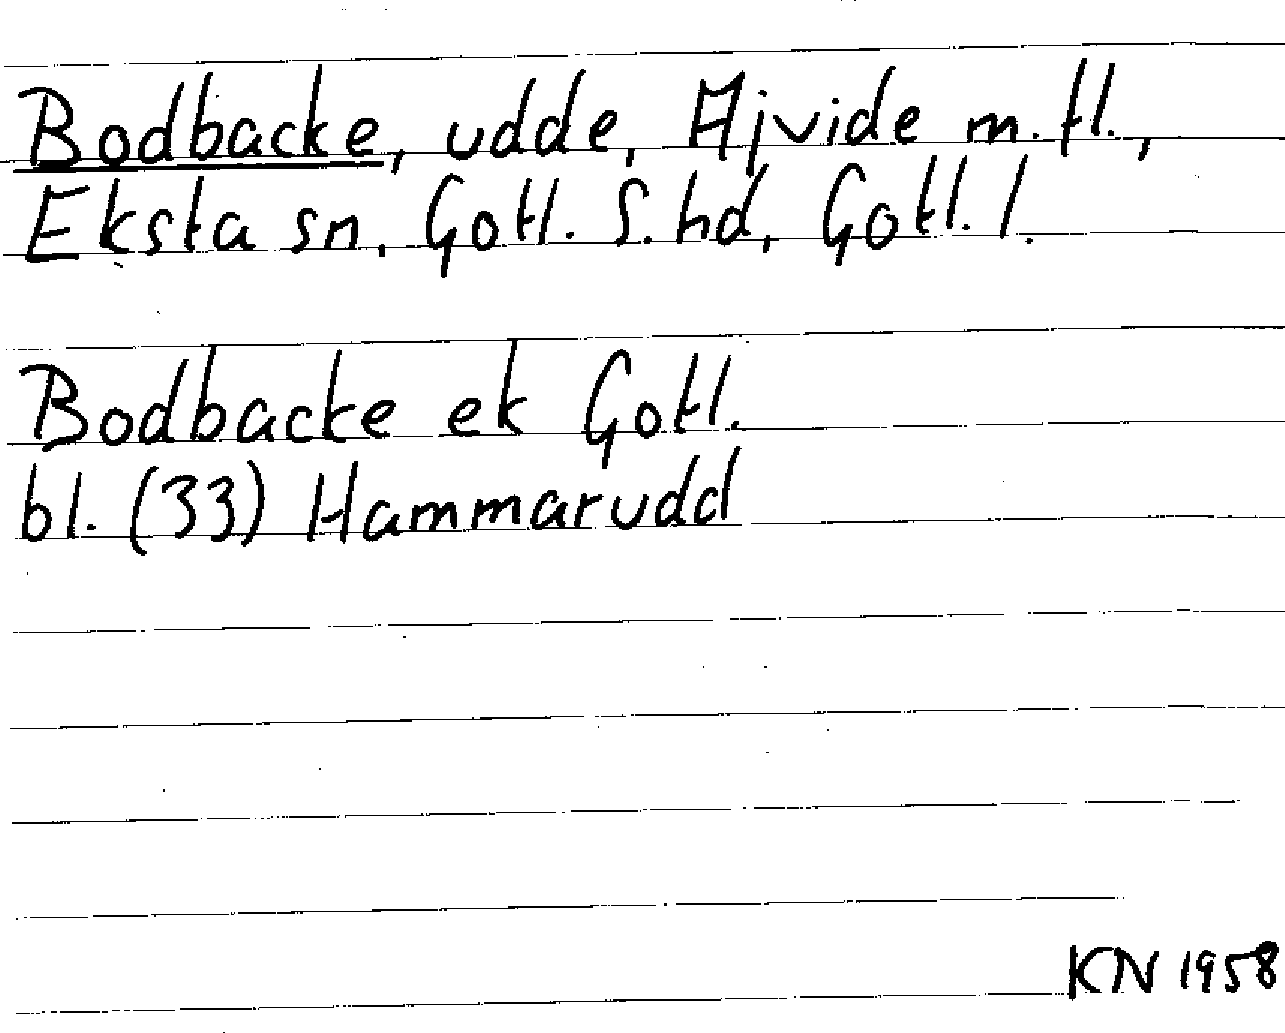 Bodbacke, udde, Ajvide m.fl.,
Eksta sn, Gotl. S. hd, Gotl. l.
Bodbacke ek Gotl.
bl. (33) Hammarudd
KN 1958